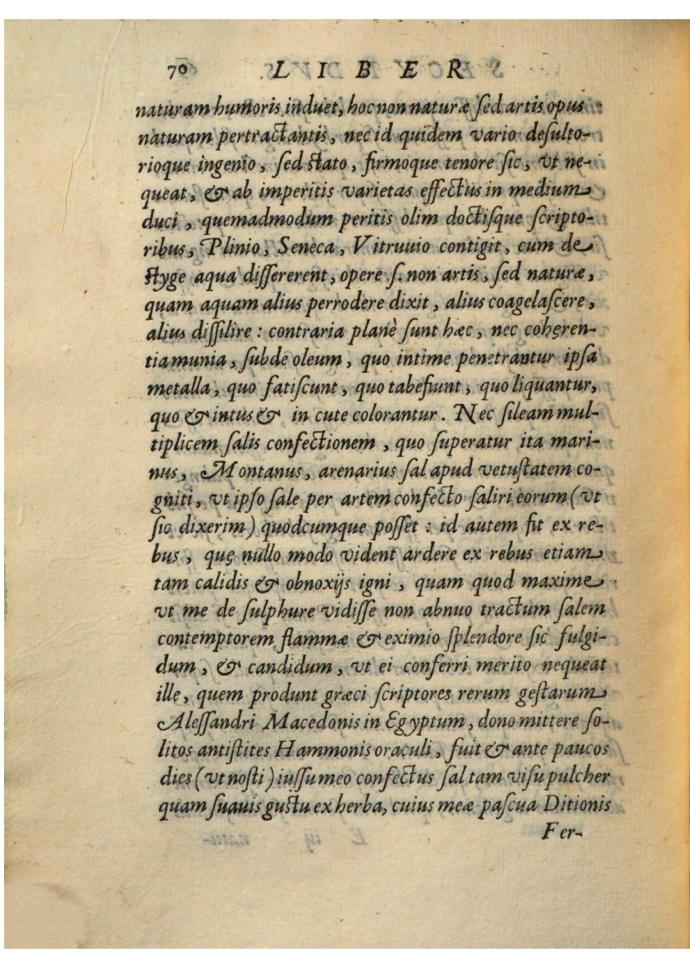 70 LIBER
naturam humoris induet, hoc non naturæ ſed artis opus
naturam pertractantis, nec id quidem vario deſulto-
rioque ingenio, ſed ſtato, firmoque tenore ſic, vt ne-
queat, & ab imperitis varietas effectus in medium
duci, quemadmodum peritis olim doctiſque ſcripto-
ribus, Plinio, Seneca, Vitruuio contigit, cum de
ſtyge aqua diſſererent, opere ſ. non artis, ſed naturæ,
quam aquam alius perrodere dixit, alius coagelaſcere,
alius diſſilire : contraria planè ſunt hæc, nec coheren-
tia munia, ſubde oleum, quo intime penetrantur ipſa
metalla, quo fatiſcunt, quo tabefiunt, quo liquantur,
quo & intus & in cute colorantur. Nec ſileam mul-
tiplicem ſalis confectionem, quo ſuperatur ita mari-
nus, Montanus, arenarius ſal apud vetuſtatem co-
gniti, vt ipſo ſale per artem confecto ſaliri eorum (vt
ſic dixerim) quodcumque poſſet : id autem fit ex re-
bus, quę nullo modo vident ardere ex rebus etiam
tam calidis & obnoxijs igni, quam quod maxime
vt me de ſulphure vidiſſe non abnuo tractum ſalem
contemptorem flammæ & eximio ſplendore ſic fulgi-
dum, & candidum, vt ei conferri merito nequeat
ille, quem produnt græci ſcriptores rerum geſtarum
Aleſſandri Macedonis in Egyptum, dono mittere ſo-
litos antiſtites Hammonis oraculi, fuit & ante paucos
dies (vt noſti) iuſſu meo confectus ſal tam viſu pulcher
quam ſuauis guſtu ex herba, cuius meæ paſcua Ditionis
Fer-